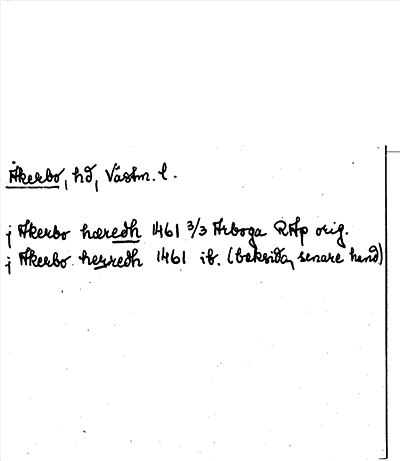 Åkerbo, hd, Västm. l.
j Akerbo hæredh 1461 3/3 Arboga RAp orig.
j Akerbo herredh 1461 ib. (baksida, senare hand)